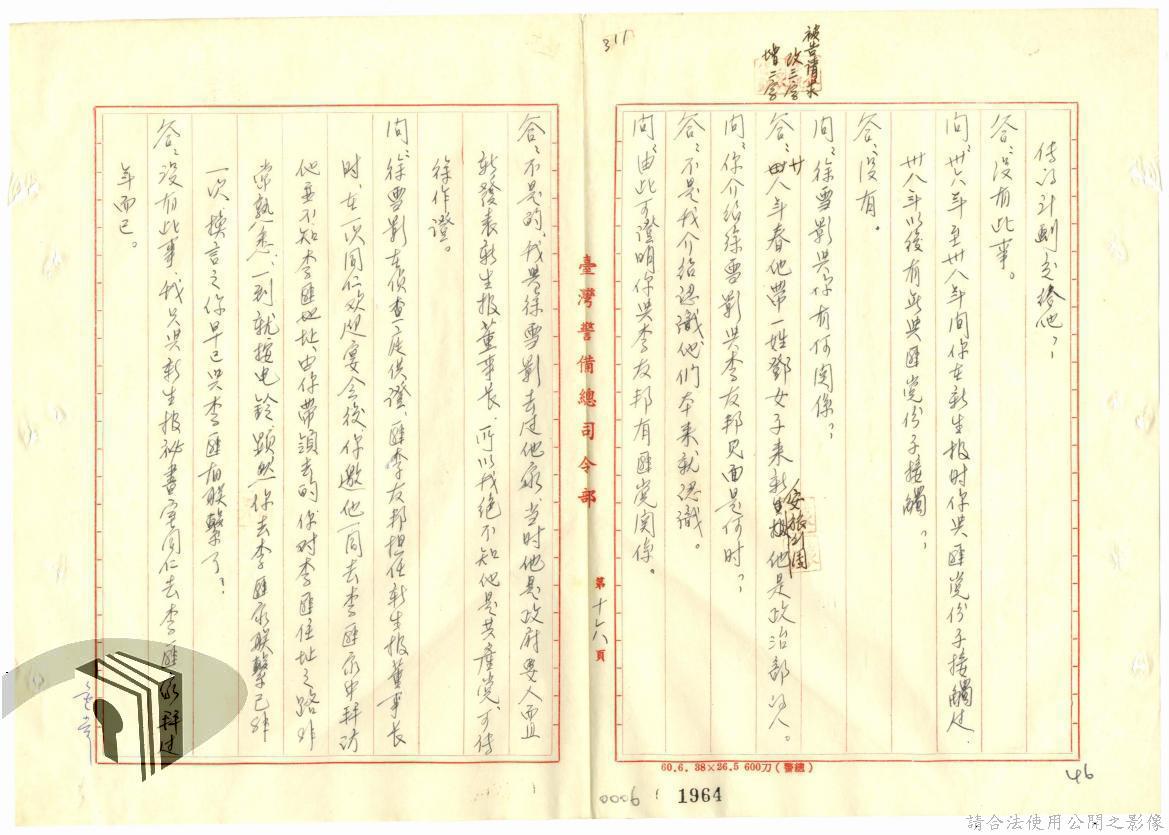 311
被告請求
改三字
增二字
傳的計劃交給他？
答：沒有此事。
問：卅六年至卅八年間你在新生报时你與匪党份子接觸过.
卅八年以後有無與匪党份子接觸？
答：沒有。
問：徐雪影與你有何関係？
答：卅八年春他带一姓鄧女子来新他是政治部的人。
問：你介紹徐雪影與李友邦見面是何时？
答：不是我介紹認識，他們本来就認識。
問：由此可證明你與李友邦有匪党関係。
臺灣警備總司令部
第十六頁
答：不是的，我與徐雪影去过他家，当时他是政府要人而且
新發表新生报董事长，所以我絕不知他是共產党，可传
徐作證。
問：徐雪影在偵查庭供證，匪李友邦担任新生报董事长
时，在一次同仁欢迎宴会後，你邀他一同去李匪家中拜访
他並不知李匪地址，由你带領去的，你对李匪住址之路非
常熟悉，一到就按电鈴，顕然你去李匪家联繫已非
一次，换言之你早已與李匪有联繫了？
答：沒有此事，我只與新生报祕書室同仁去李匪家拜过
年而已。
60.6. 38×26.5 600刀（警總）
0006
1964
46
請合法使用公開之影像